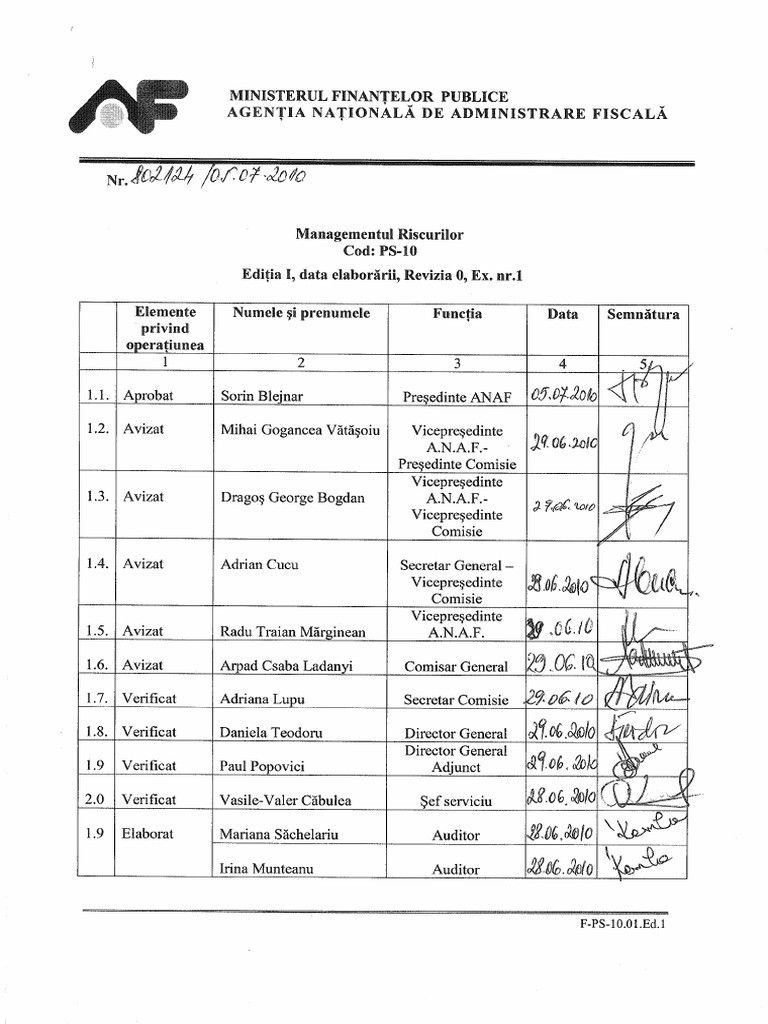 AF
MINISTERUL FINANȚELOR PUBLICE
AGENȚIA NAȚIONALĂ DE ADMINISTRARE FISCALĂ
Nr. 802124 /05.07.2010
Managementul Riscurilor
Cod: PS-10
Ediția I, data elaborării, Revizia 0, Ex. nr.1
Elemente privind operațiunea Numele și prenumele Funcția Data Semnătura
1 2 3 4 5
1.1. Aprobat Sorin Blejnar Președinte ANAF 05.07.2010
1.2. Avizat Mihai Gogancea Vătășoiu Vicepreședinte A.N.A.F.- Președinte Comisie 29.06.2010
1.3. Avizat Dragoș George Bogdan Vicepreședinte A.N.A.F.- Vicepreședinte Comisie 29.06.2010
1.4. Avizat Adrian Cucu Secretar General – Vicepreședinte Comisie 29.06.2010
1.5. Avizat Radu Traian Mărginean Vicepreședinte A.N.A.F. 29.06.10
1.6. Avizat Arpad Csaba Ladanyi Comisar General 29.06.10
1.7. Verificat Adriana Lupu Secretar Comisie 29.06.10
1.8. Verificat Daniela Teodoru Director General 29.06.2010
1.9 Verificat Paul Popovici Director General Adjunct 29.06.2010
2.0 Verificat Vasile-Valer Căbulea Șef serviciu 28.06.2010
1.9 Elaborat Mariana Săchelariu Auditor 28.06.2010
Irina Munteanu Auditor 28.06.2010
F-PS-10.01.Ed.1